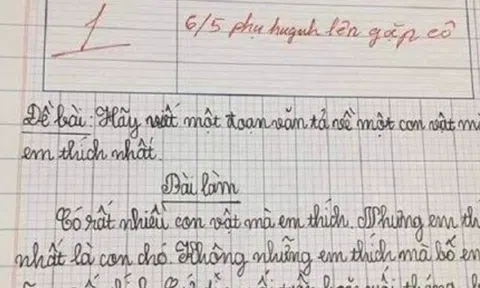 1
6/5 phụ huynh lên gặp cô
Đề bài: Hãy viết một đoạn văn tả về một con vật mà
em thích nhất.
Bài làm
Có rất nhiều con vật mà em thích. Nhưng em th
nhất là con chó. Không những em thích mà bố em